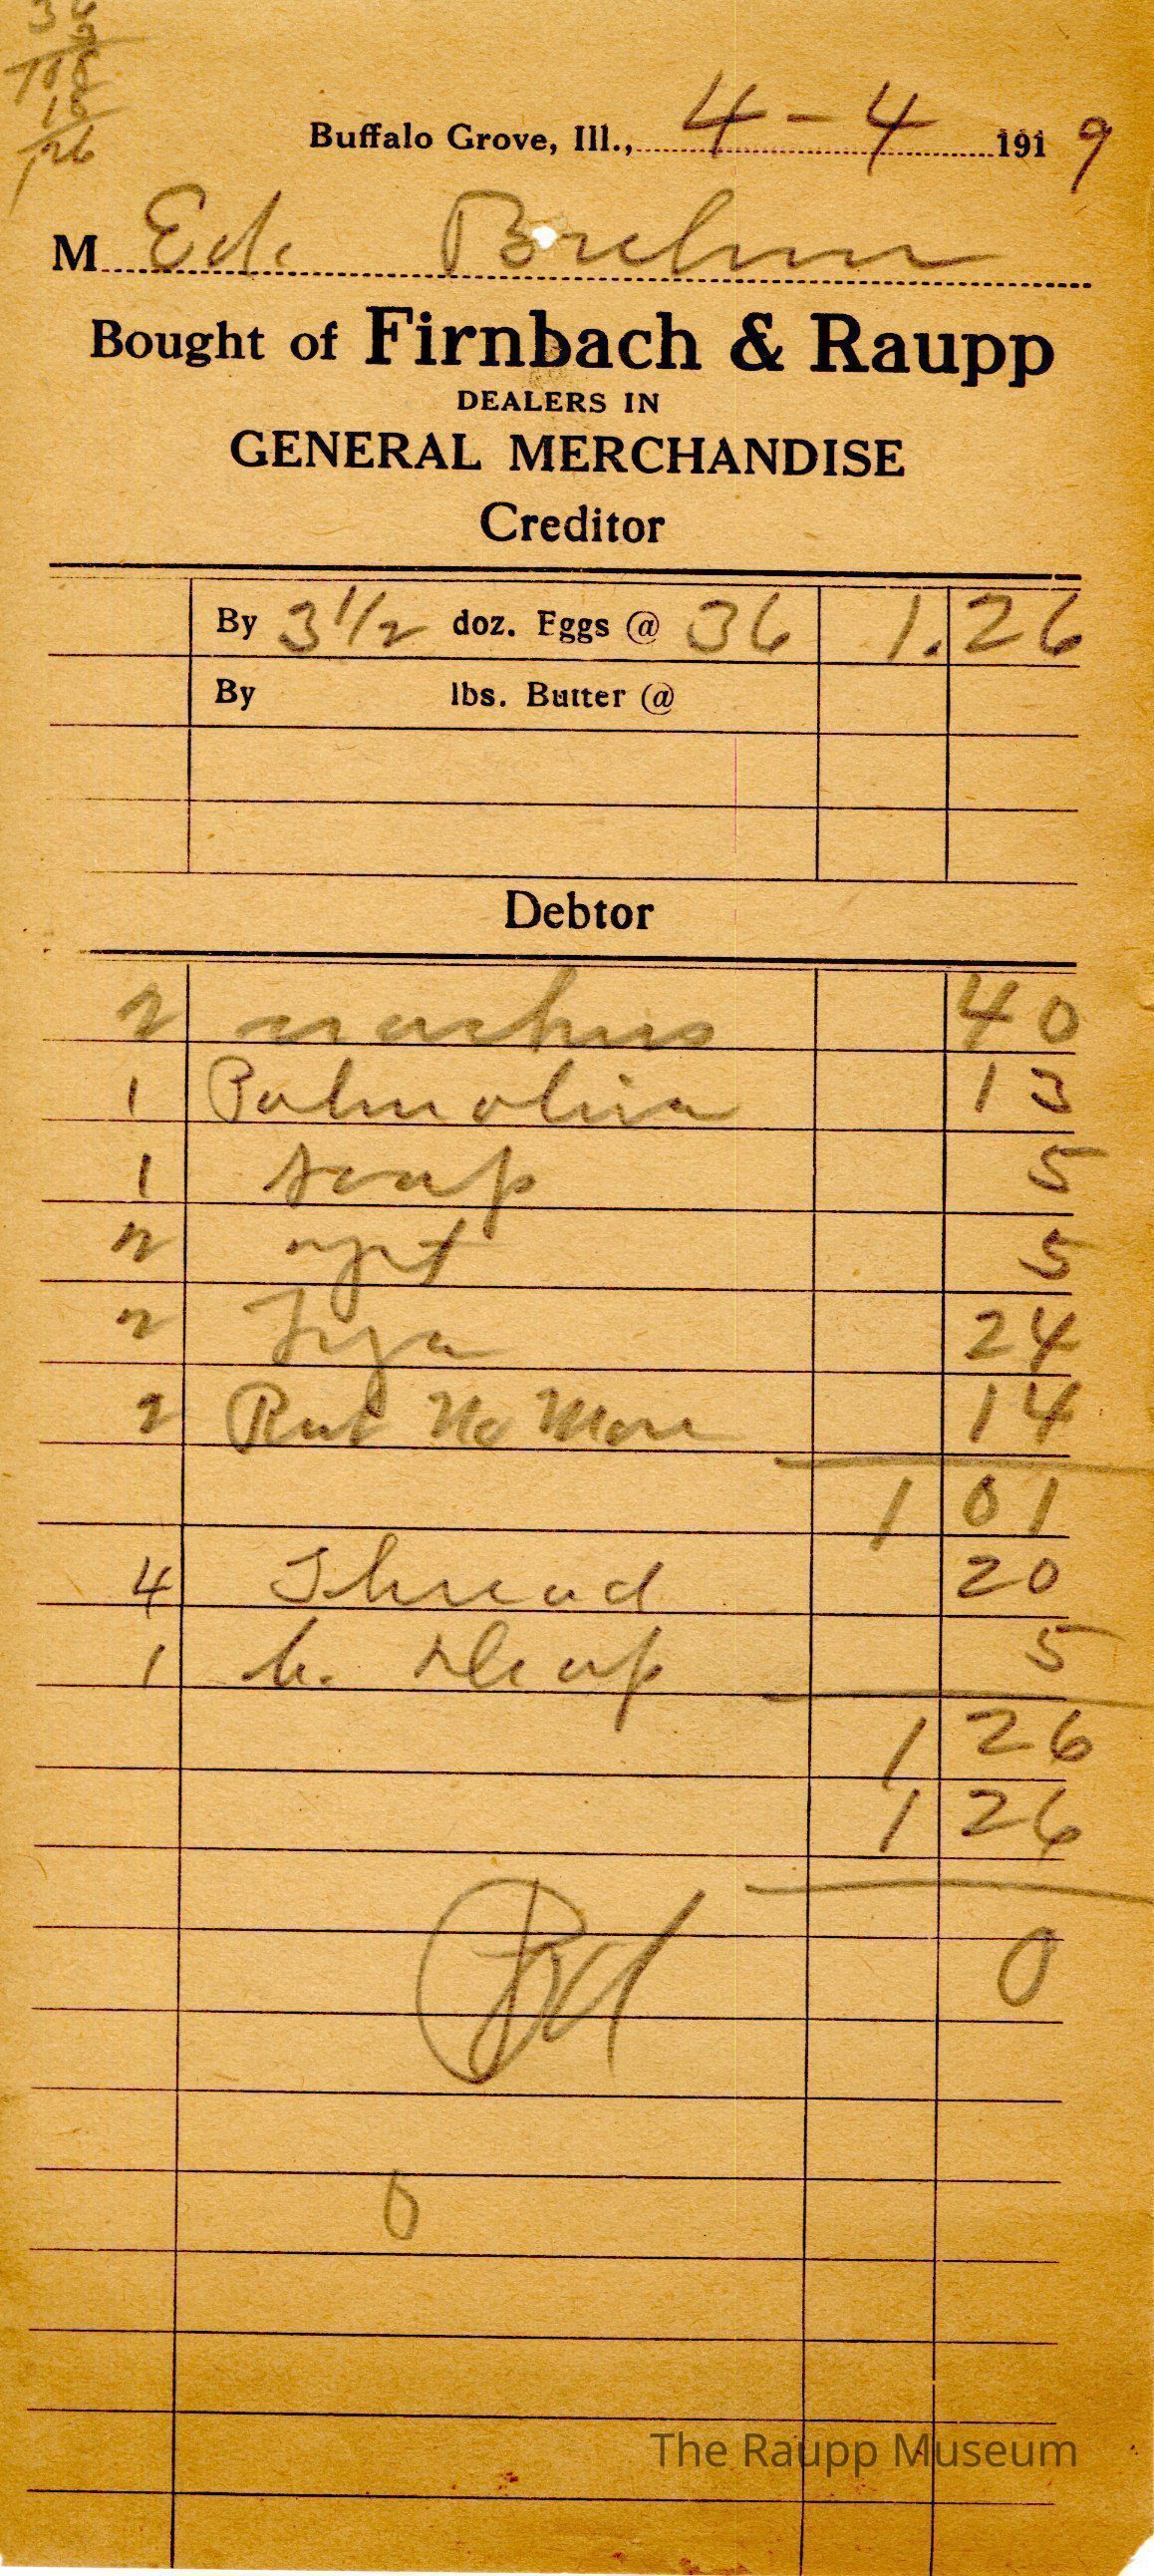 36
3
108
18
126
Buffalo Grove, Ill., 4-4 1919
M Ed.
Bought of Firnbach & Raupp
DEALERS IN
GENERAL MERCHANDISE
Creditor
By 3 1/2 doz. Eggs @ 36 1.26
By lbs. Butter @
Debtor
2 40
1 Palmolive 13
1 soap 5
2 5
2 24
2 Rub No More 14
1 01
4 Thread 20
1 5
1 26
1 26
0
0
The Raupp Museum